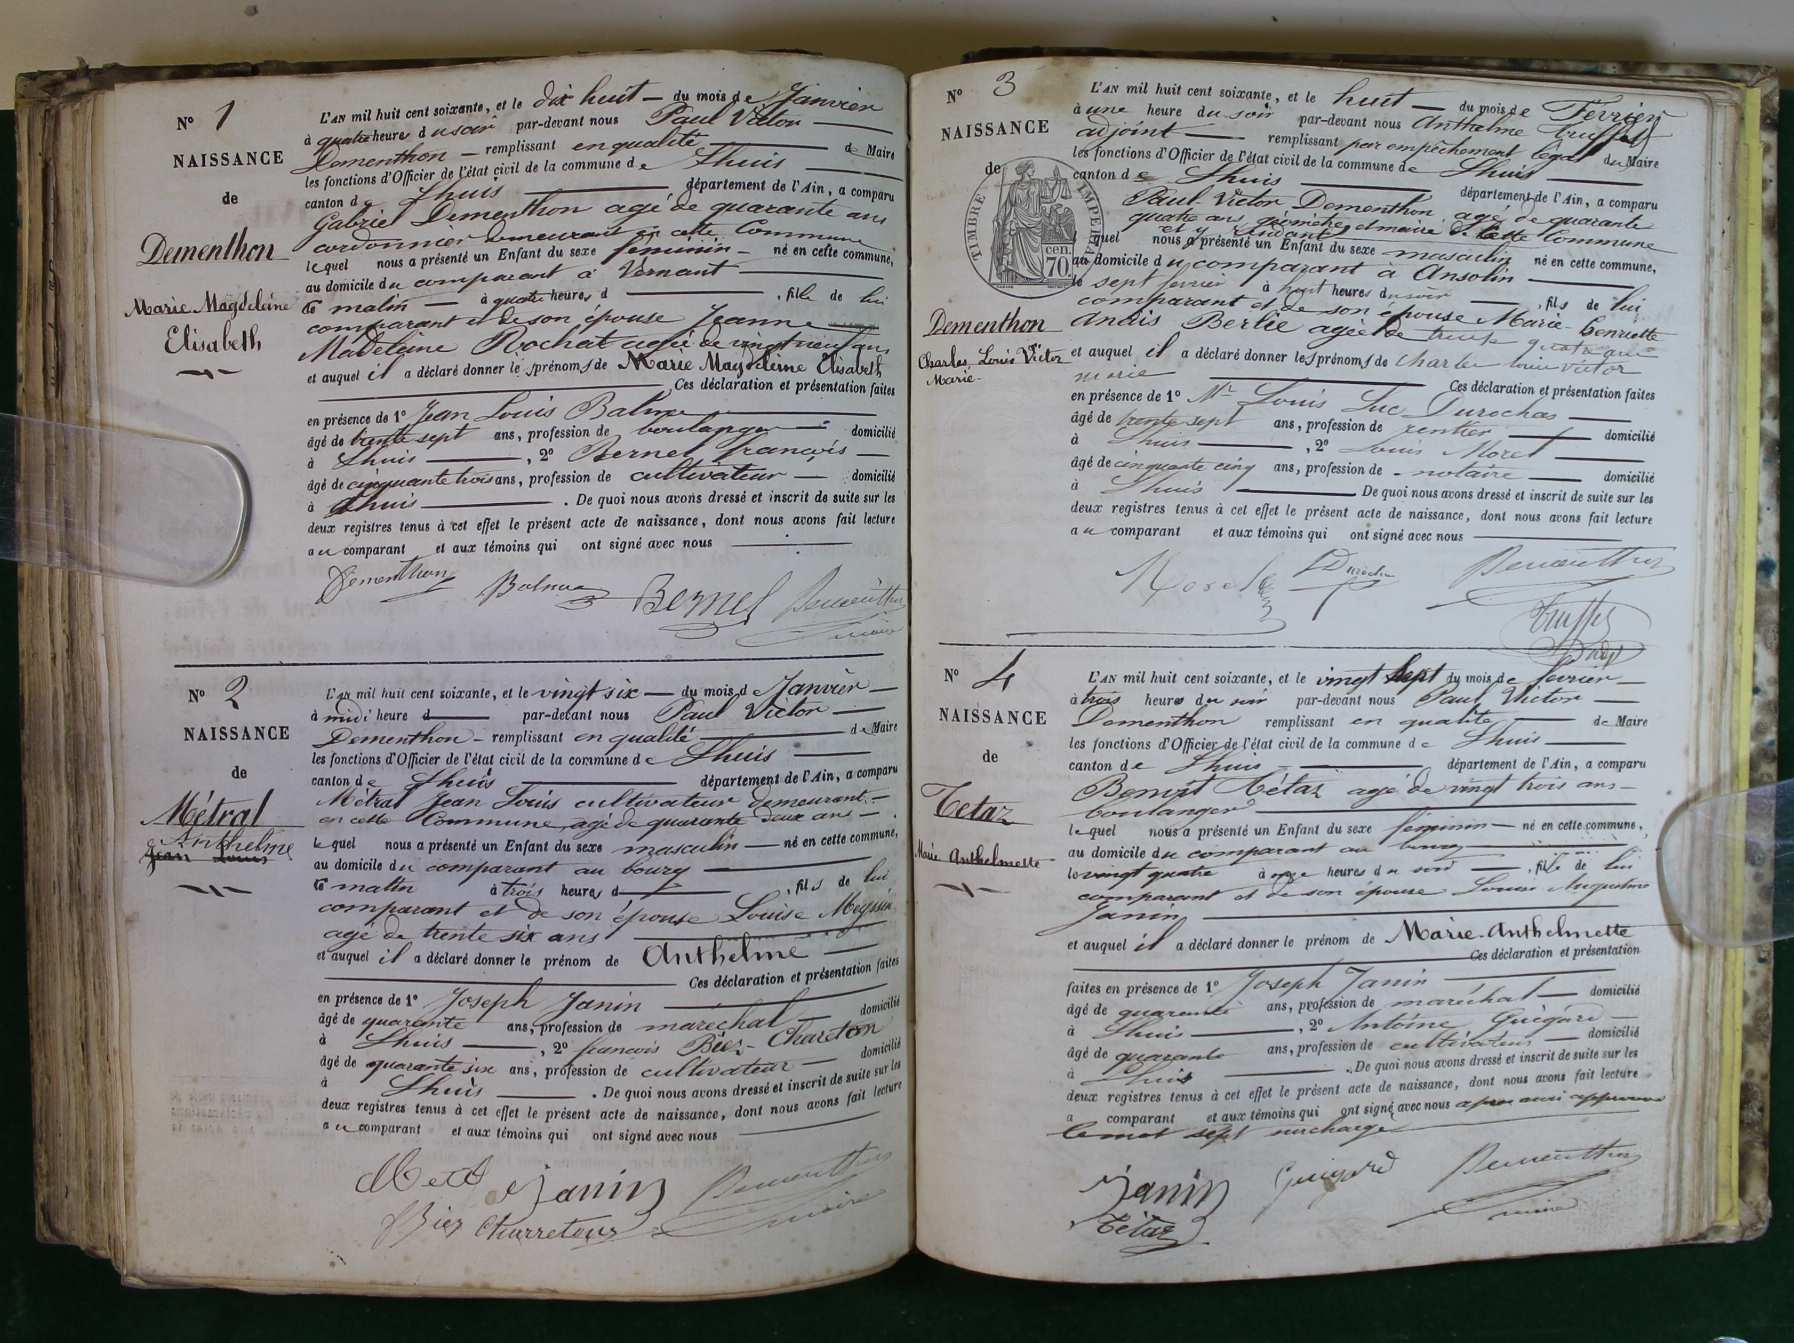 N° 1
NAISSANCE
de
Dementhon
Marie Magdeleine
Elisabeth
L'AN mil huit cent soixante, et le dix huit — du mois de Janvier
à quatre heures du soir par-devant nous Paul Victor —
Dementhon — remplissant en qualité — de Maire
les fonctions d'Officier de l'état civil de la commune de Lhuis —
canton de Lhuis — département de l'Ain, a comparu
Gabriel Dementhon agé de quarante ans
cordonnier demeurant en cette Commune
lequel nous a présenté un Enfant du sexe féminin — né en cette commune,
au domicile du comparant à Vernant —
le matin — à quatre heures d — , fille de lui
comparant et de son épouse Jeanne
Madeleine Rochat agée de vingt neuf ans
et auquel il a déclaré donner les prénoms de Marie Magdeleine Elisabeth
— Ces déclaration et présentation faites
en présence de 1° Jean Louis Balme —
âgé de trente sept ans, profession de boulanger — domicilié
à Lhuis — , 2° Bernel françois —
âgé de cinquante trois ans, profession de cultivateur — domicilié
à Lhuis — . De quoi nous avons dressé et inscrit de suite sur les
deux registres tenus à cet effet le présent acte de naissance, dont nous avons fait lecture
au comparant et aux témoins qui ont signé avec nous —
Dementhon Balme Bernel Dementhon
maire
N° 2
NAISSANCE
de
Métral
Anthelme
Jean Louis
L'AN mil huit cent soixante, et le vingt six — du mois de Janvier —
à midi heure d — par-devant nous Paul Victor —
Dementhon — remplissant en qualité — de Maire
les fonctions d'Officier de l'état civil de la commune de Lhuis —
canton de Lhuis — département de l'Ain, a comparu
Métral Jean Louis cultivateur demeurant —
en cette Commune, agé de quarante deux ans —
lequel nous a présenté un Enfant du sexe masculin — né en cette commune,
au domicile du comparant au bourg —
le matin à trois heures d — , fils de lui
comparant et de son épouse Louise
agé de trente six ans —
et auquel il a déclaré donner le prénom de Anthelme —
— Ces déclaration et présentation faites
en présence de 1° Joseph Janin —
âgé de quarante ans, profession de maréchal — domicilié
à Lhuis — , 2° françois Biez-Chareton
âgé de quarante six ans, profession de cultivateur — domicilié
à Lhuis — . De quoi nous avons dressé et inscrit de suite sur les
deux registres tenus à cet effet le présent acte de naissance, dont nous avons fait lecture
au comparant et aux témoins qui ont signé avec nous —
Janin Dementhon
Biez Charreton maire
N° 3
NAISSANCE
de
TIMBRE IMPERIAL
70 cen.
Dementhon
Charles Louis Victor
Marie
L'AN mil huit cent soixante, et le huit — du mois de Février
à une heure du soir par-devant nous Anthelme Truffet
adjoint — remplissant par empêchement légal du Maire
les fonctions d'Officier de l'état civil de la commune de Lhuis —
canton de Lhuis — département de l'Ain, a comparu
Paul Victor Dementhon agé de quarante
quatre ans, géomètre et maire de cette Commune
et y résidant
lequel nous a présenté un Enfant du sexe masculin né en cette commune,
au domicile du comparant à Ansolin —
le sept fevrier à huit heures du soir — , fils de lui
comparant et de son épouse Marie henriette
Anaïs Berlie agée de trente quatre ans
et auquel il a déclaré donner les prénoms de Charles Louis Victor
marie — Ces déclaration et présentation faites
en présence de 1° Mr Louis Luc Durochas —
âgé de trente sept ans, profession de rentier — domicilié
à Lhuis — , 2° Louis Morel —
âgé de cinquante cinq ans, profession de notaire — domicilié
à Lhuis — De quoi nous avons dressé et inscrit de suite sur les
deux registres tenus à cet effet le présent acte de naissance, dont nous avons fait lecture
au comparant et aux témoins qui ont signé avec nous —
Morel Durochas Dementhon
Truffet
N° 4
NAISSANCE
de
Tetaz
Marie Anthelmette
L'AN mil huit cent soixante, et le vingt sept du mois de fevrier —
à trois heures du soir par-devant nous Paul Victor —
Dementhon remplissant en qualité — de Maire
les fonctions d'Officier de l'état civil de la commune de Lhuis —
canton de Lhuis — département de l'Ain, a comparu
Benoit Tétaz agé de vingt trois ans —
boulanger —
lequel nous a présenté un Enfant du sexe féminin — né en cette commune,
au domicile du comparant au bourg —
le vingt quatre à onze heures du soir — , fille de lui
comparant et de son épouse Louise Augustine
Janin —
et auquel il a déclaré donner le prénom de Marie-Anthelmette
— Ces déclaration et présentation
faites en présence de 1° Joseph Janin —
âgé de quarante ans, profession de maréchal — domicilié
à Lhuis — , 2° Antoine Guigard —
âgé de quarante ans, profession de cultivateur — domicilié
à Lhuis — . De quoi nous avons dressé et inscrit de suite sur les
deux registres tenus à cet effet le présent acte de naissance, dont nous avons fait lecture
a comparant et aux témoins qui ont signé avec nous après avoir approuvé
le mot sept surchargé —
Janin Guigard Dementhon
Tétaz maire